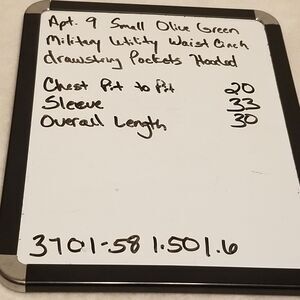 Apt. 9 Small Olive Green
Military Utility Waist Cinch
drawstring Pockets Hooded
Chest Pit to Pit 20
Sleeve 33
Overall Length 30
3701-58 1.501.6